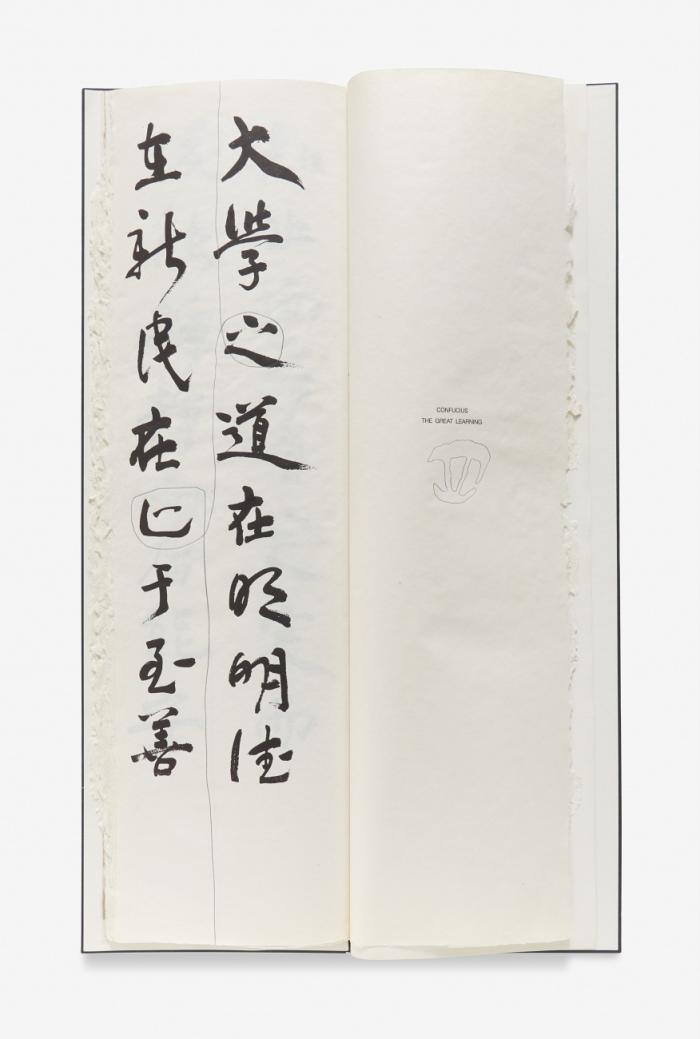 CONFUCIUS
THE GREAT LEARNING
大學之道在明明德
在新民在止于至善